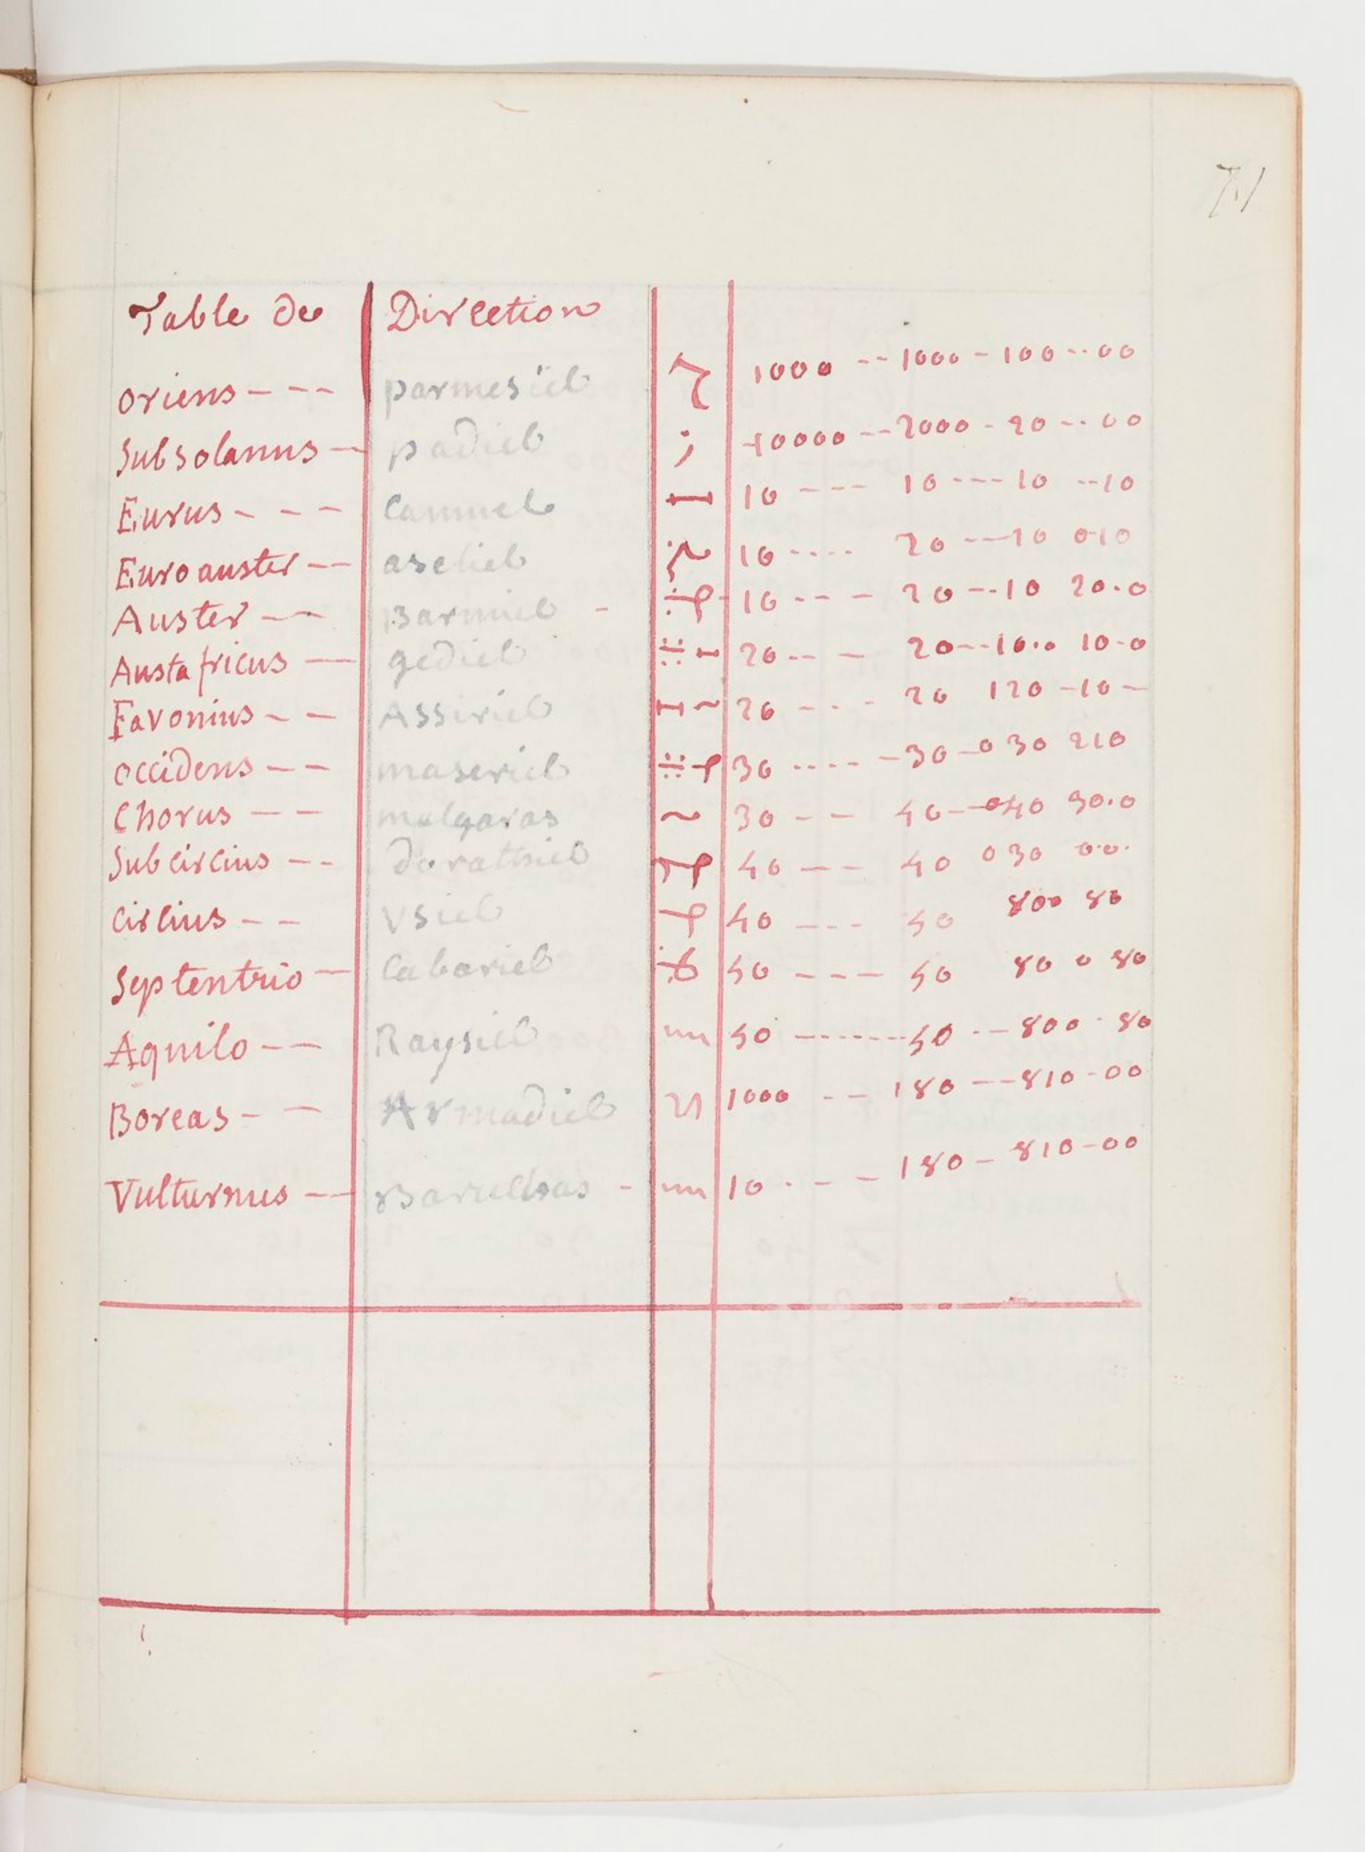 71
Table de Direction
oriens - - - parmesiel 1000 -- 1000 - 100 -- 00
Subsolanus - padiel 10000 -- 2000 - 20 -- 00
Eurus - - - Camuel 10 --- 10 --- 10 -- 10
Euroauster -- aseliel 10 ---- 20 -- 10 010
Auster -- Barmiel - 10 --- 20 -- 10 20.0
Austafricus - gediel 20 -- - 20 -- 10.0 10-0
Favonius -- Assiriel 20 --- - 20 120 -10 -
occidens -- maseriel 30 ---- -30 -0 30 210
Chorus -- malgaras 30 -- 40 -- 040 30.0
Subcircius -- dorathiel 40 -- 40 030 00.
Circius -- Usiel 40 --- 50 800 80
Septentrio - Cabariel 50 --- 50 80 0 80
Aquilo -- Raysiel 50 ------- 50 -- 800 - 80
Boreas -- Armadiel 1000 -- 180 -- 810-00
Vulturnus -- Baruchas - 10 - - - 180 - 810-00